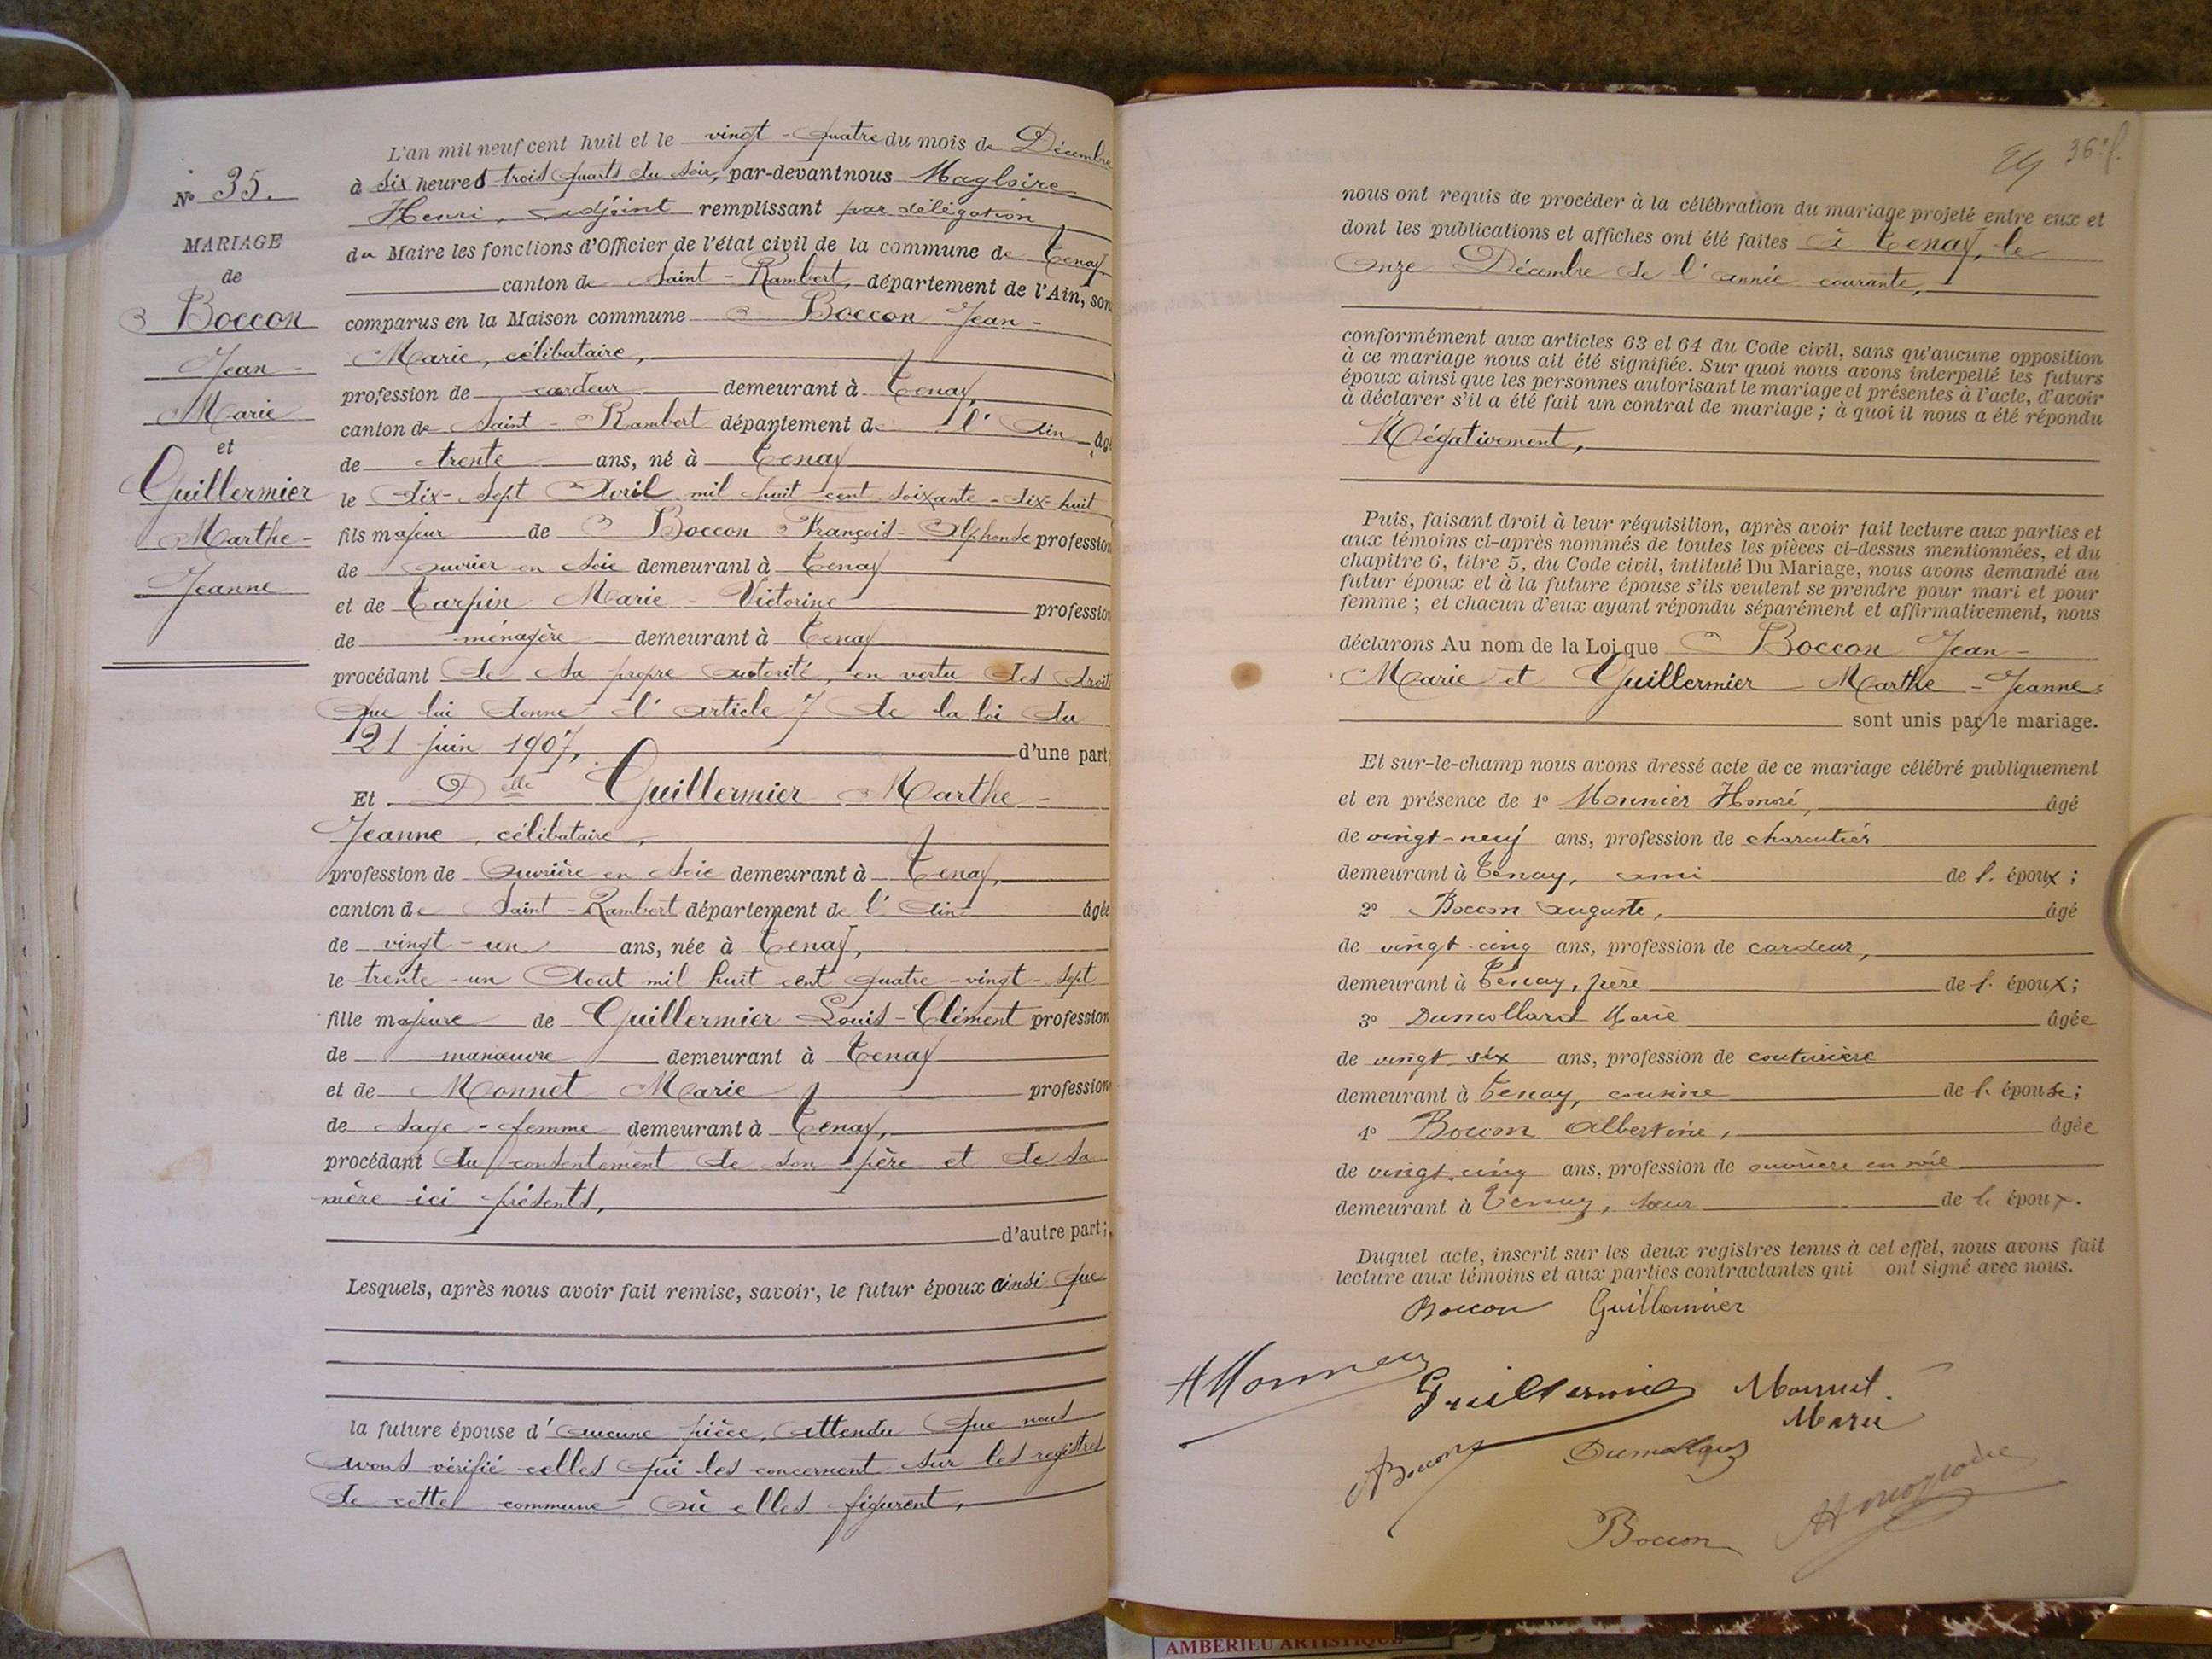 N° 35.
MARIAGE
de
Boccon
Jean -
Marie
et
Guillermier
Marthe -
Jeanne
L'an mil neuf cent huit et le vingt-quatre du mois de Décembre
à six heures trois quarts du soir, par-devant nous Magloire
Henri, adjoint remplissant par délégation
du Maire les fonctions d'Officier de l'état civil de la commune de Tenay
canton de Saint-Rambert, département de l'Ain, son
comparus en la Maison commune Boccon Jean-
Marie, célibataire,
profession de cardeur demeurant à Tenay,
canton de Saint-Rambert département de l'Ain âgé
de trente ans, né à Tenay
le dix-sept Avril mil huit cent soixante-dix-huit
fils majeur de Boccon François-Alphonse profession
de ouvrier en soie demeurant à Tenay
et de Tarpin Marie-Victorine profession
de ménagère demeurant à Tenay
procédant de sa propre autorité, en vertu des droits
que lui donne l'article 7 de la loi du
21 juin 1907, d'une part;
Et Delle Guillermier Marthe-
Jeanne, célibataire,
profession de ouvrière en soie demeurant à Tenay,
canton de Saint-Rambert département de l'Ain âgée
de vingt-un ans, née à Tenay,
le trente-un Août mil huit cent quatre-vingt-sept
fille majeure de Guillermier Louis-Clément profession
de manœuvre demeurant à Tenay
et de Monnet Marie profession
de sage-femme demeurant à Tenay,
procédant du consentement de son père et de sa
mère ici présents,
d'autre part;
Lesquels, après nous avoir fait remise, savoir, le futur époux ainsi que
la future épouse d'aucune pièce, attendu que nous
avons vérifié celles qui les concernent sur les registres
de cette commune où elles figurent,
36 f.
nous ont requis de procéder à la célébration du mariage projeté entre eux et
dont les publications et affiches ont été faites à Tenay, le
onze Décembre de l'année courante,
conformément aux articles 63 et 64 du Code civil, sans qu'aucune opposition
à ce mariage nous ait été signifiée. Sur quoi nous avons interpellé les futurs
époux ainsi que les personnes autorisant le mariage et présentes à l'acte, d'avoir
à déclarer s'il a été fait un contrat de mariage; à quoi il nous a été répondu
Négativement,
Puis, faisant droit à leur réquisition, après avoir fait lecture aux parties et
aux témoins ci-après nommés de toutes les pièces ci-dessus mentionnées, et du
chapitre 6, titre 5, du Code civil, intitulé Du Mariage, nous avons demandé au
futur époux et à la future épouse s'ils veulent se prendre pour mari et pour
femme; et chacun d'eux ayant répondu séparément et affirmativement, nous
déclarons Au nom de la Loi que Boccon Jean-
Marie et Guillermier Marthe-Jeanne
sont unis par le mariage.
Et sur-le-champ nous avons dressé acte de ce mariage célébré publiquement
et en présence de 1° Monnier Honoré, âgé
de vingt-neuf ans, profession de charcutier
demeurant à Tenay, ami de l. époux;
2° Boccon Auguste, âgé
de vingt-cinq ans, profession de cardeur,
demeurant à Tenay, frère de l. époux;
3° Dumollard Marie âgée
de vingt six ans, profession de couturière
demeurant à Tenay, cousine de l. épouse;
4° Boccon Albertine, âgée
de vingt-cinq ans, profession de ouvrière en soie
demeurant à Tenay, sœur de l. époux.
Duquel acte, inscrit sur les deux registres tenus à cet effet, nous avons fait
lecture aux témoins et aux parties contractantes qui ont signé avec nous.
Boccon Guillermier
Guillermier Monnet
Marie
Boccon Dumollard
Boccon
AMBERIEU ARTISTIQUE